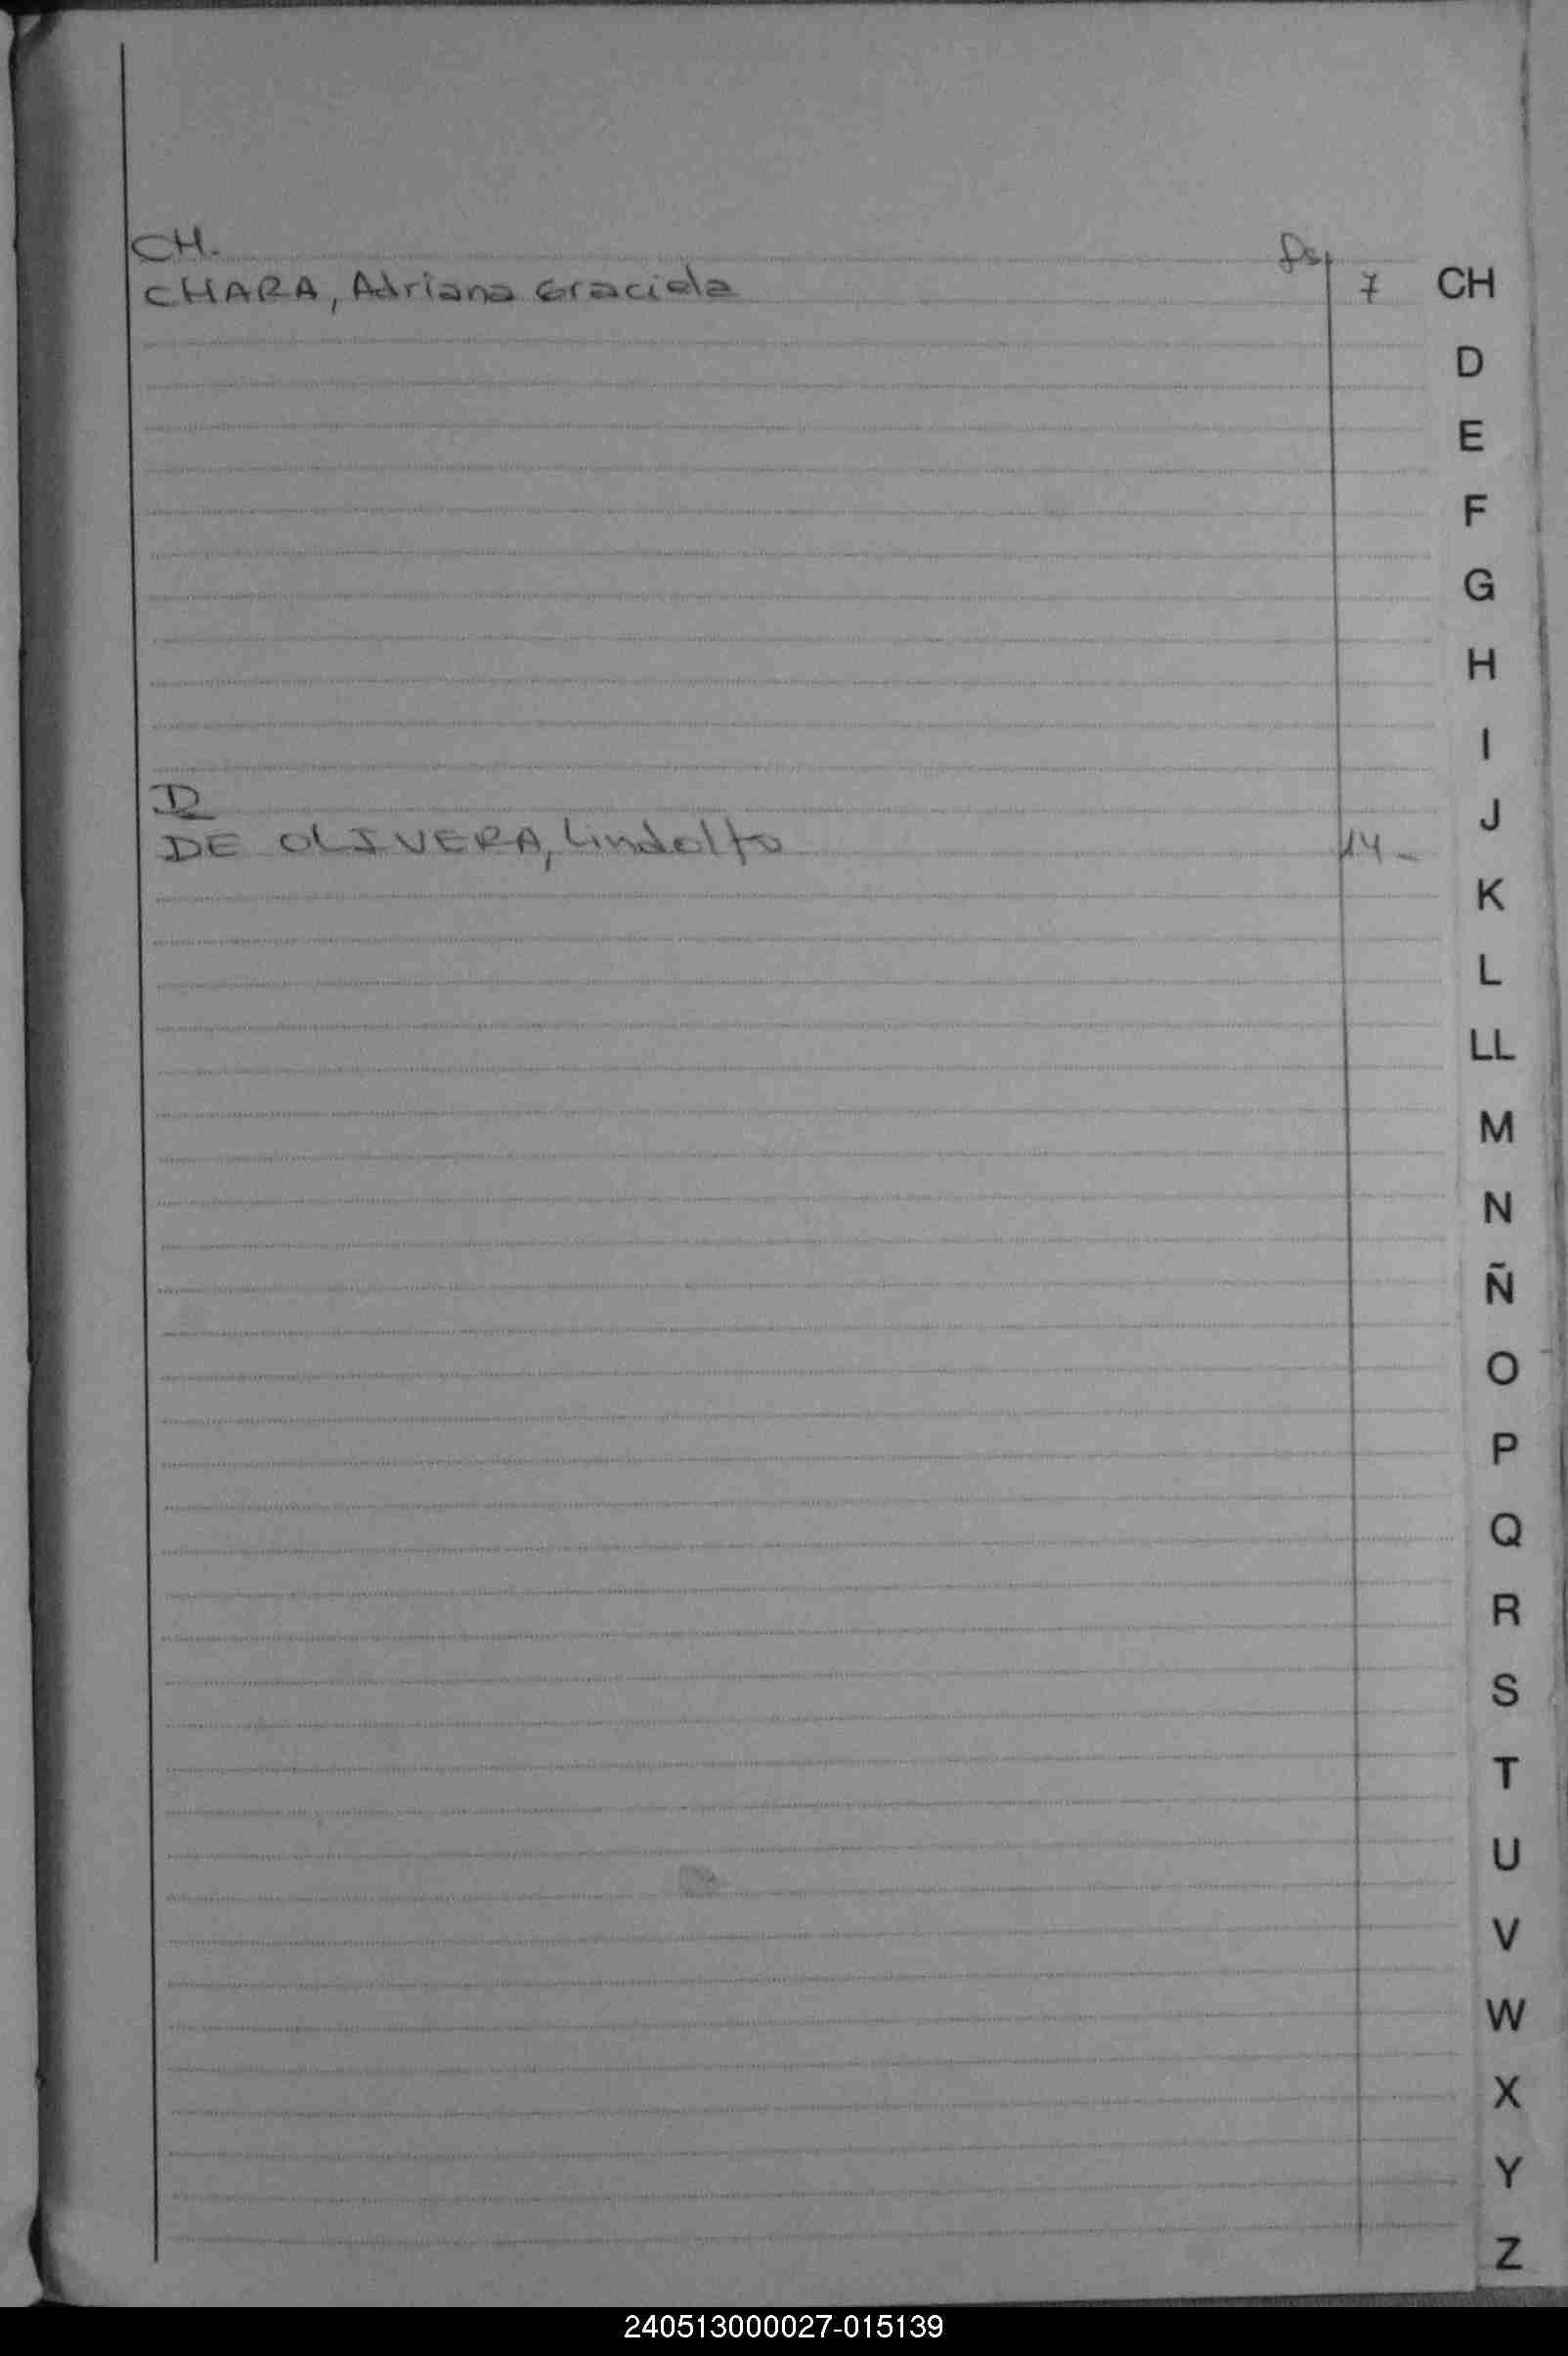 CH.
fs,
CHARA, Adriana Graciela 7
CH
D
E
F
G
H
I
D
J
DE OLIVERA, Lindolfo 14 -
K
L
LL
M
N
Ñ
O
P
Q
R
S
T
U
V
W
X
Y
Z
240513000027-015139